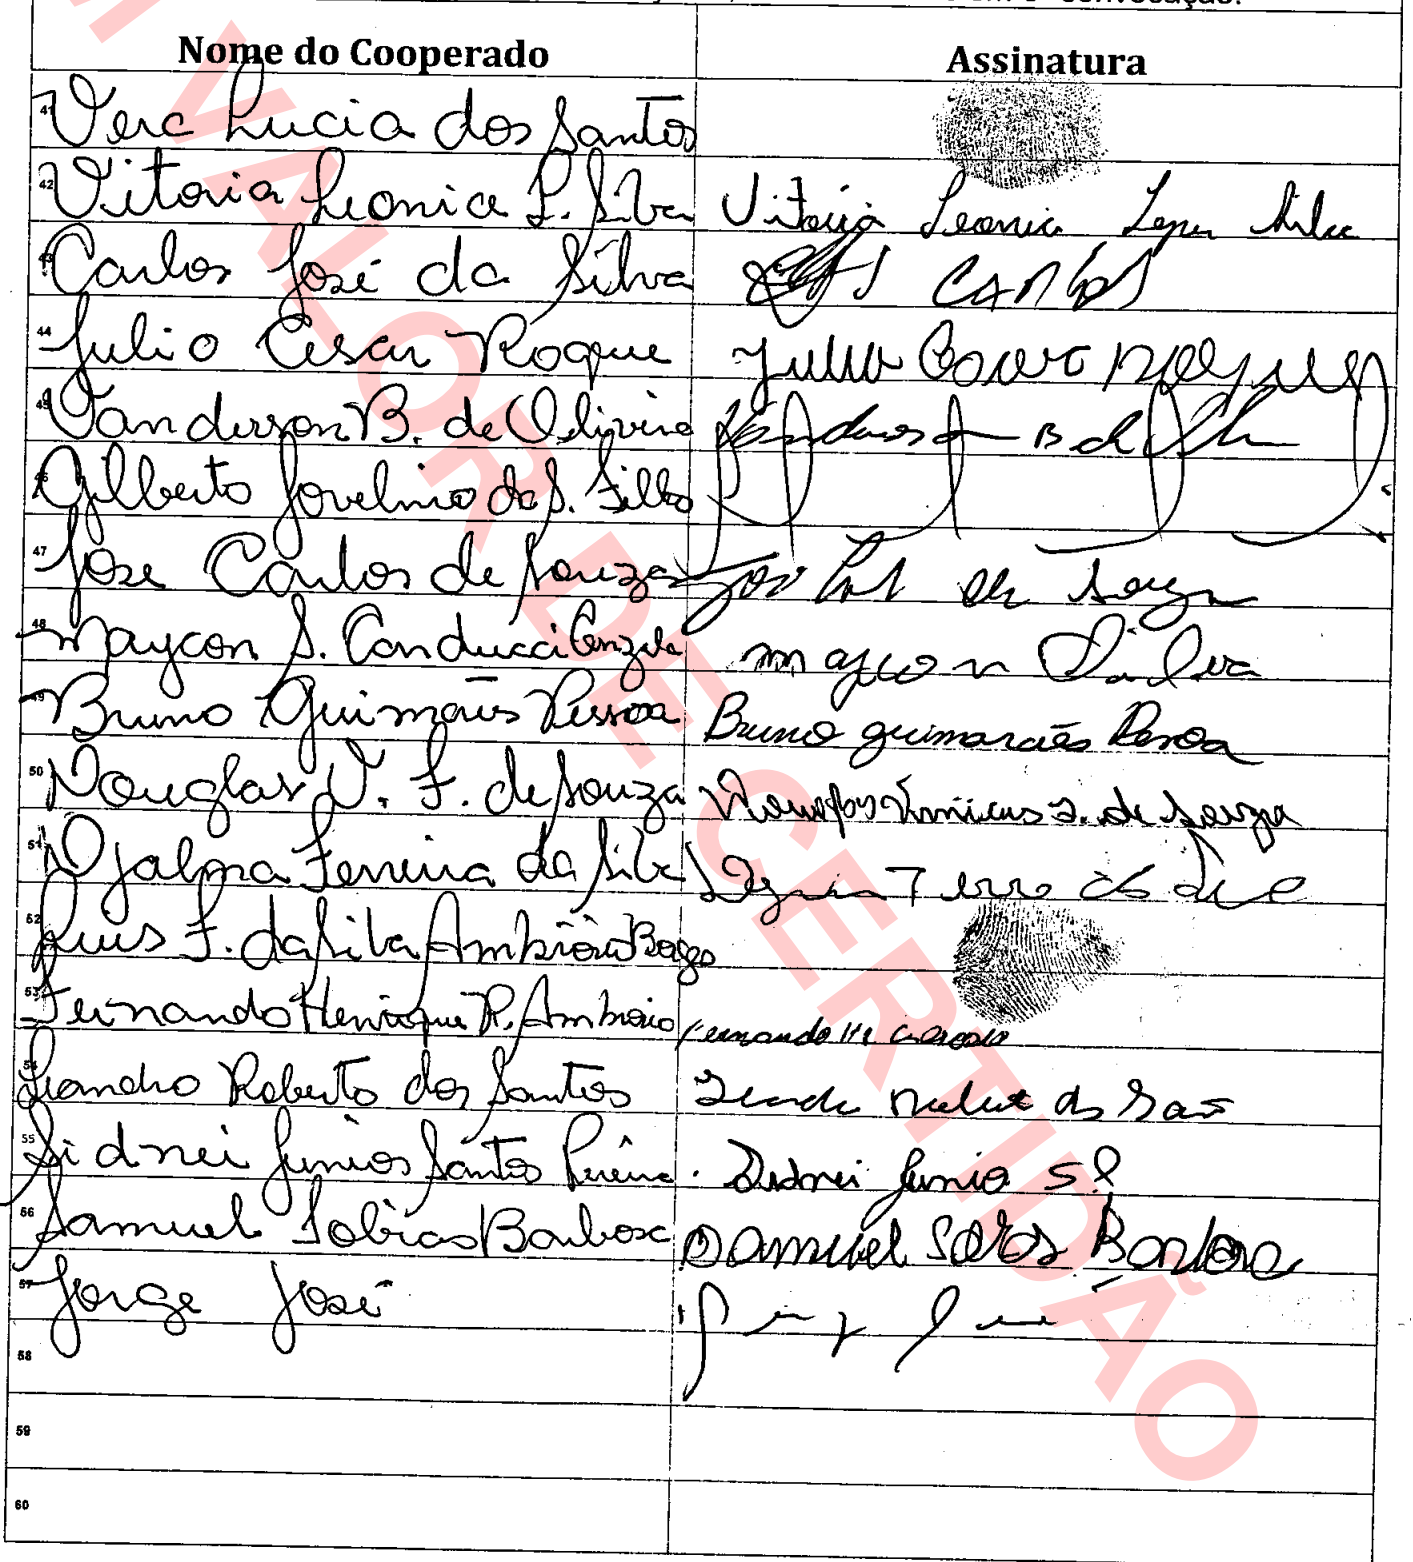 convocação.
Nome do Cooperado Assinatura
41 Vera Lucia dos Santos
42 Vitoria Leonice L. Silva Vitoria Leonice Lopes Silva
43 Carlos José da Silva CARLOS
44 Julio Cesar Roque Julio
45 Vanderson B. de Oliveira Vanderson B de
46 Gilberto Jovelino da S. Filho
47 Jose Carlos de Souza José de Souza
48 Maycon S. Conducci maycon Silva
49 Bruno Guimarães Pessoa Bruno guimarães Pessoa
50 Douglas V. F. de Souza Douglas Vinicius F. de Souza
51 Djalma Ferreira da Silva
52 Luis F. da Silva Ambrósio Borges
53 Fernando Henrique R. Ambrosio Fernando
54 Leandro Roberto dos Santos
55 Sidnei Junior Santos Pereira. Sidnei Junio S P
56 Samuel Tobias Barbosa Samuel Barbosa
57 Jorge José
58
59
60
M VALOR DE CERTIDÃO